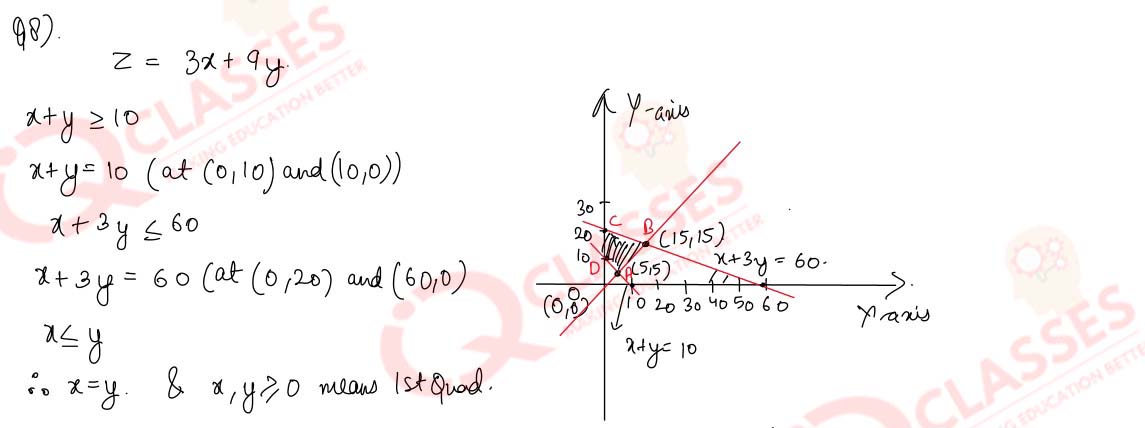 Q8).
Z = 3x + 9y.
x+y ≥ 10
x+y = 10 (at (0,10) and (10,0))
x + 3y ≤ 60
x + 3y = 60 (at (0,20) and (60,0)
x ≤ y
∴ x=y. & x,y ≥ 0 means 1st Quad.
Y-axis
30
C
20
B
(15,15)
10
D
A
(5,5)
x+3y = 60.
0
(0,0)
10 20 30 40 50 60
X-axis
x+y=10
IQ CLASSES
MAKING EDUCATION BETTER
IQ CLASSES
MAKING EDUCATION BETTER
CLASSES
EDUCATION BETTER